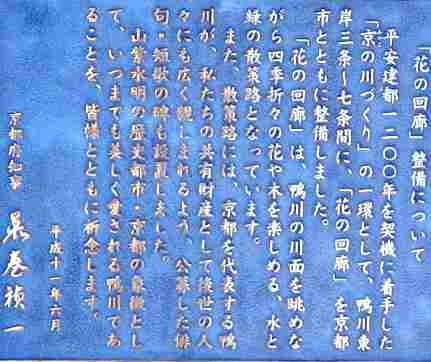 「花の回廊」整備について
平安建都一二〇〇年を契機に着手した
「京の川づくり」の一環として、鴨川東
岸三条〜七条間に、「花の回廊」を京都
市とともに整備しました。
「花の回廊」は、鴨川の川面を眺めな
がら四季折々の花や木を楽しめる、水と
緑の散策路となっています。
また、散策路には、京都を代表する鴨
川が、私たちの共有財産として後世の人
々にも広く親しまれるよう、公募した俳
句・短歌の碑も設置しました。
山紫水明の歴史都市・京都の象徴とし
て、いつまでも美しく愛される鴨川であ
ることを、皆様とともに祈念します。
平成十一年六月
京都府知事 荒巻禎一